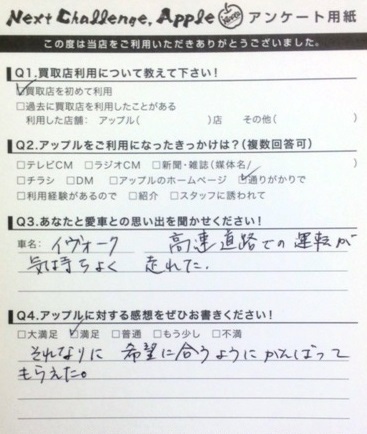 Next Challenge, Apple アンケート用紙
この度は当店をご利用いただきありがとうございました。
Q1.買取店利用について教えて下さい!
☑買取店を初めて利用
□過去に買取店を利用したことがある
利用した店舗: アップル( )店 その他( )
Q2.アップルをご利用になったきっかけは?(複数回答可)
□テレビCM □ラジオCM □新聞・雑誌(媒体名/ )
□チラシ □DM □アップルのホームページ ☑通りがかりで
□利用経験があるので □紹介 □スタッフに誘われて
Q3.あなたと愛車との思い出を聞かせください!
車名: イヴォーク 高速道路での運転が
気持ちよく 走れた.
Q4.アップルに対する感想をぜひお書きください!
□大満足 ☑満足 □普通 □もう少し □不満
それなりに 希望に合うように がんばって
もらえた。